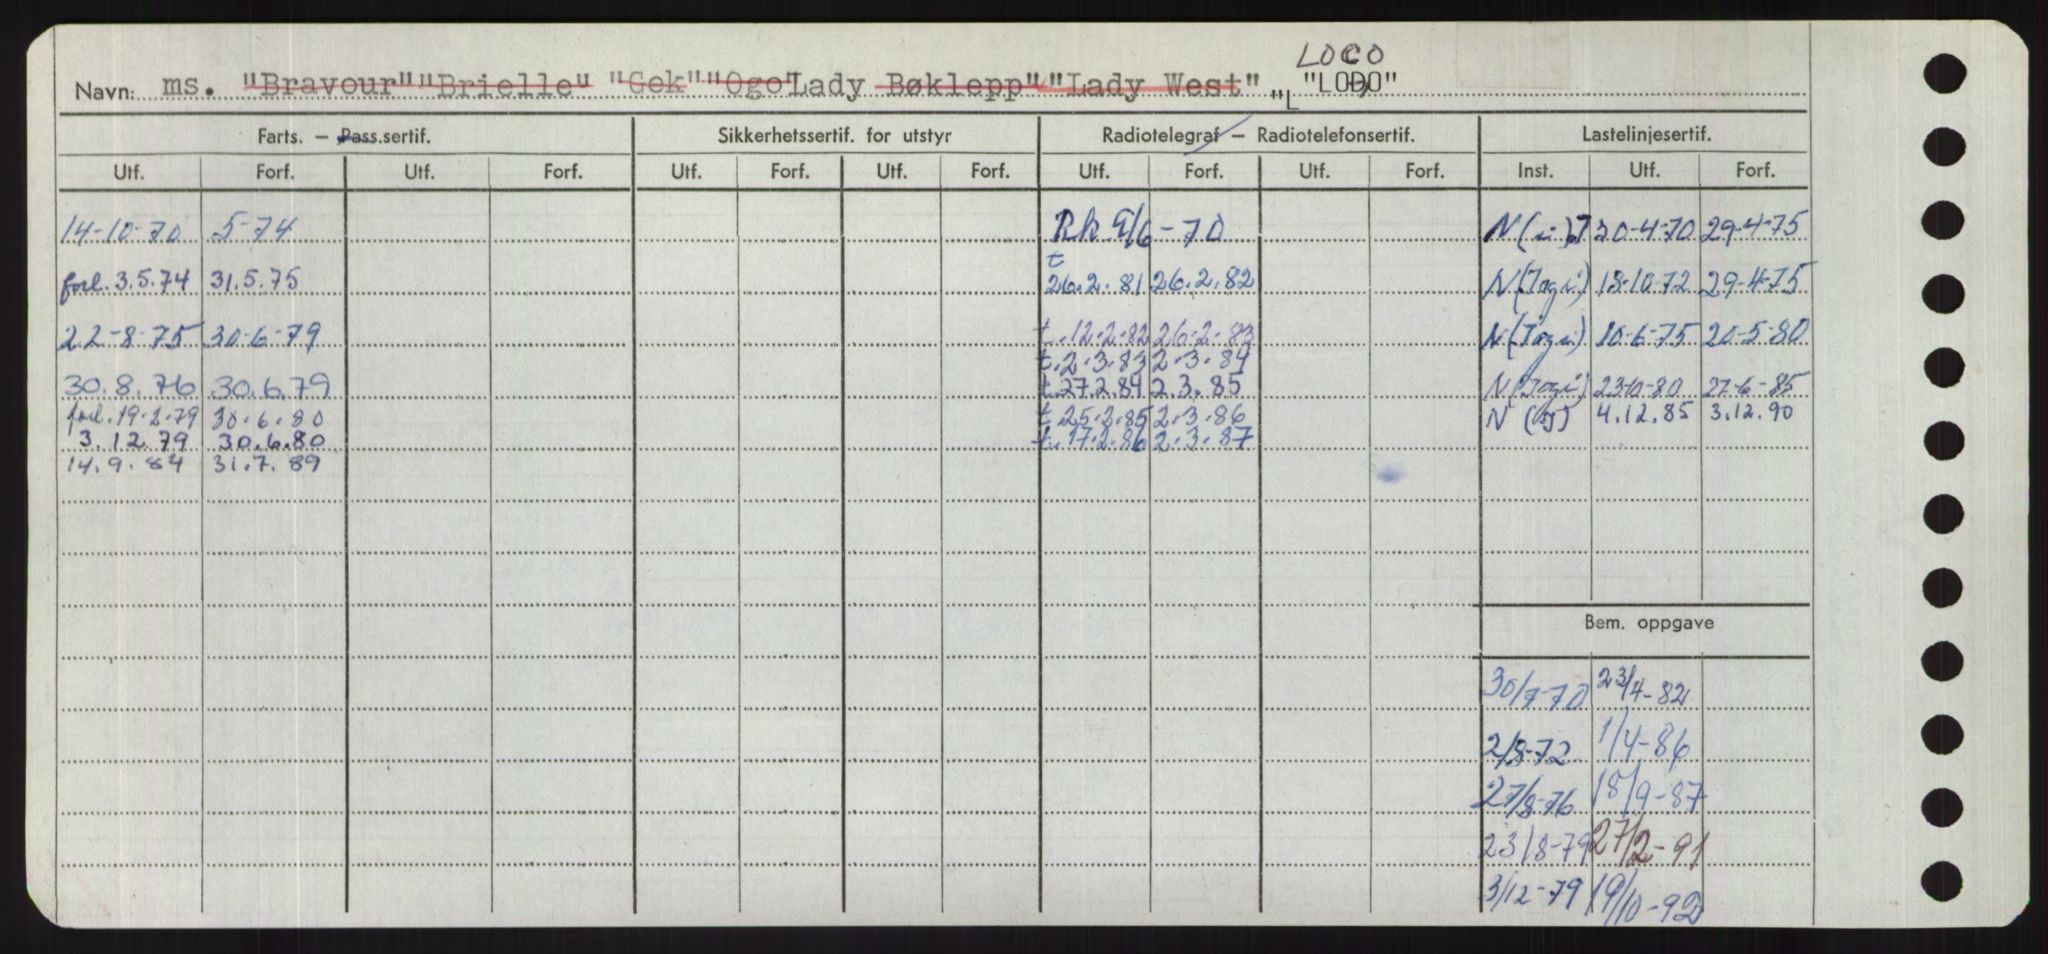 LOCO
Navn: ms. "Bravour" "Brielle" "Gek" "Ogo" Lady Bøklepp" "Lady West" "L "LODO"
Farts. — Pass.sertif. Sikkerhetssertif. for utstyr Radiotelegraf — Radiotelefonsertif. Lastelinjesertif.
Utf. Forf. Utf. Forf. Utf. Forf. Utf. Forf. Utf. Forf. Utf. Forf. Inst. Utf. Forf.
14-10-70 5-74 Rk 9/6-70 N 30-4-70 29-4-75
forl. 3.5.74 31.5.75 t 26.2.81 26.2.82 N 18-10-72 29-4-75
22-8-75 30-6-79 t. 12.2.82 26.2.83 N 10-6-75 20-5-80
t. 2.3.83 2.3.84
30.8.76 30.6.79 t. 27.2.84 2.3.85 N 23-10-80 27-6-85
forl. 19.2.79 30.6.80 t. 25.2.85 2.3.86 N 4.12.85 3.12.90
3.12.79 30.6.80 t. 17.2.86 2.3.87
14.9.84 31.7.89
Bem. oppgave
30/7-70 23/4-82
2/8-72 1/4-86
27/8-76 18/9-87
23/8-79 27/2-91
3/12-79 19/10-92